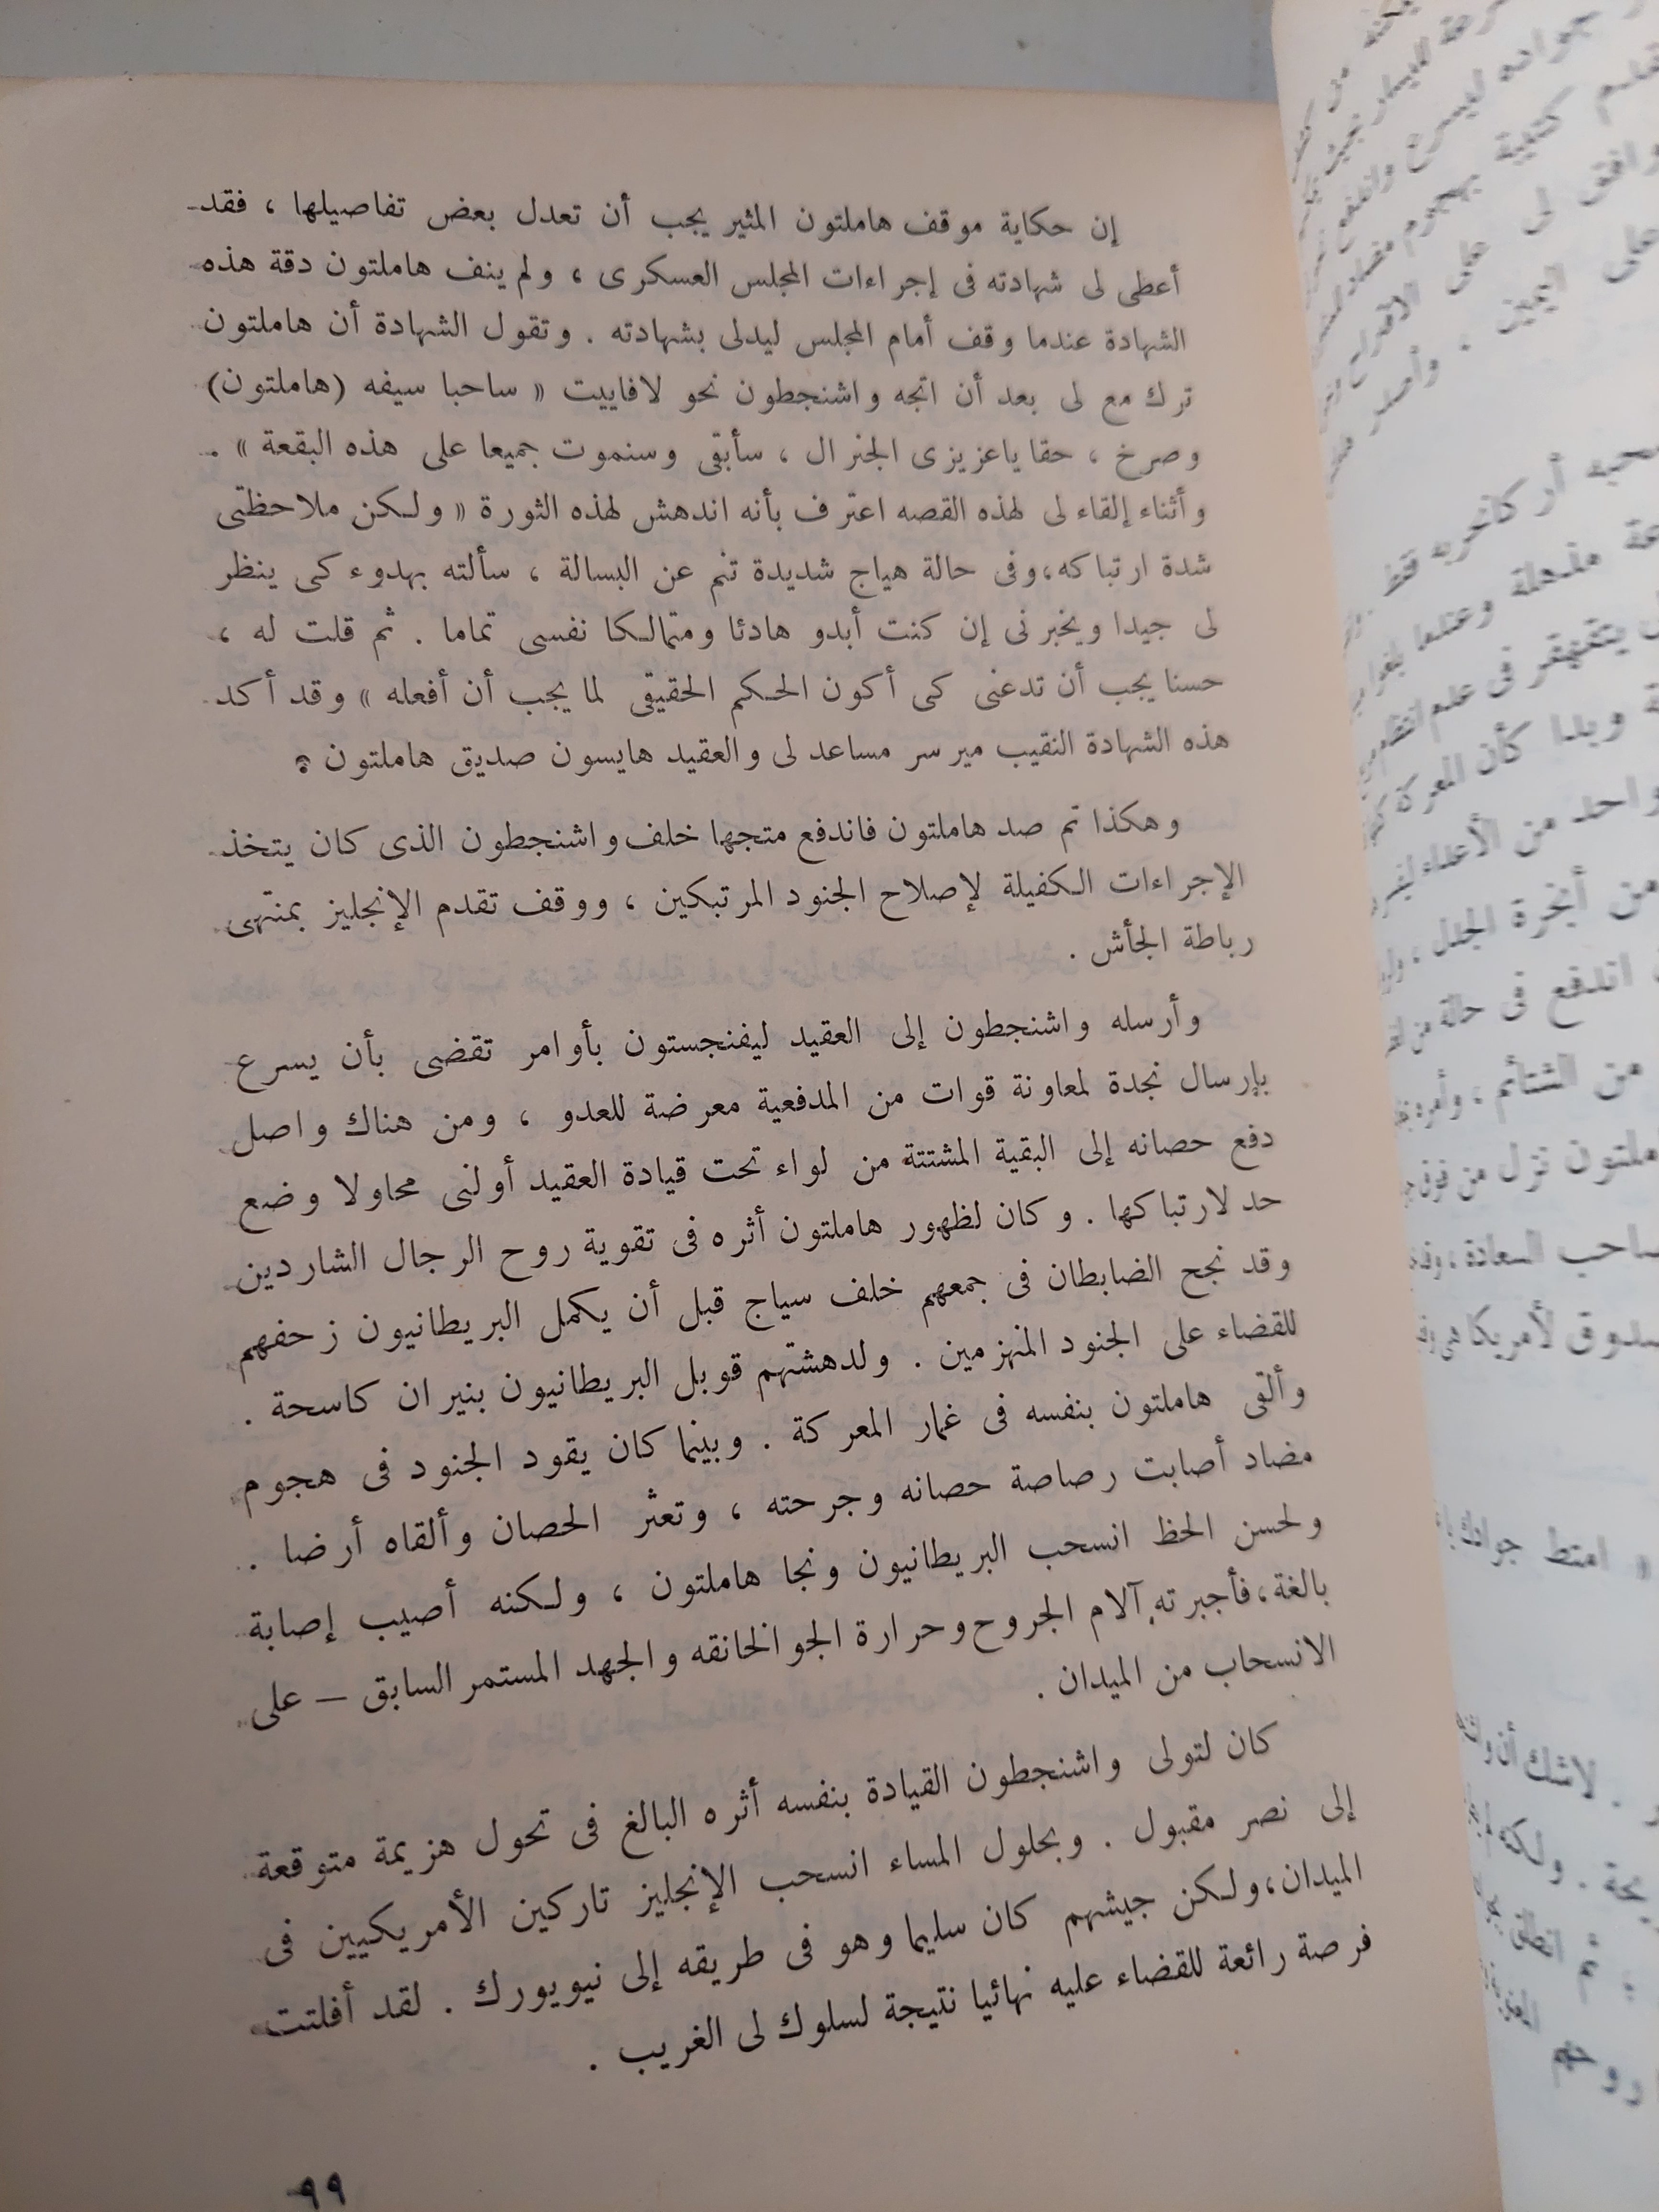 إن حكاية موقف هاملتون المثير يجب أن تعدل بعض تفاصيلها ، فقد
أعطى لى شهادته فى إجراءات المجلس العسكرى ، ولم ينف هاملتون دقة هذه
الشهادة عندما وقف أمام المجلس ليدلى بشهادته . وتقول الشهادة أن هاملتون
ترك مع لى بعد أن اتجه واشنجطون نحو لافاييت « ساحبا سيفه (هاملتون)
وصرخ ، حقا ياعزيزى الجنرال ، سأبقى وسنموت جميعا على هذه البقعة » .
وأثناء إلقاء لى لهذه القصه اعترف بأنه اندهش لهذه الثورة « ولكن ملاحظتى
شدة ارتباكه،وفى حالة هياج شديدة تنم عن البسالة ، سألته بهدوء كى ينظر
لى جيدا ويخبرنى إن كنت أبدو هادئا ومتمالكا نفسى تماما . ثم قلت له ،
حسنا يجب أن تدعنى كى أكون الحكم الحقيقى لما يجب أن أفعله » وقد أكد
هذه الشهادة النقيب ميرسر مساعد لى والعقيد هايسون صديق هاملتون .
وهكذا تم صد هاملتون فاندفع متجها خلف واشنجطون الذى كان يتخذ
الإجراءات الكفيلة لإصلاح الجنود المرتبكين ، ووقف تقدم الإنجليز بمنتهى
رباطة الجأش .
وأرسله واشنجطون إلى العقيد ليفنجستون بأوامر تقضى بأن يسرع
بإرسال نجدة لمعاونة قوات من المدفعية معرضة للعدو ، ومن هناك واصل
دفع حصانه إلى البقية المشتتة من لواء تحت قيادة العقيد أولنى محاولا وضع
حد لارتباكها . وكان لظهور هاملتون أثره فى تقوية روح الرجال الشاردين
وقد نجح الضابطان فى جمعهم خلف سياج قبل أن يكمل البريطانيون زحفهم
للقضاء على الجنود المنهزمين . ولدهشتهم قوبل البريطانيون بنيران كاسحة .
وألقى هاملتون بنفسه فى غمار المعركة . وبينما كان يقود الجنود فى هجوم
مضاد أصابت رصاصة حصانه وجرحته ، وتعثر الحصان وألقاه أرضا .
ولحسن الحظ انسحب البريطانيون ونجا هاملتون ، ولكنه أصيب إصابة
بالغة،فأجبرته آلام الجروح وحرارة الجو الخانقه والجهد المستمر السابق – على
الانسحاب من الميدان .
كان لتولى واشنجطون القيادة بنفسه أثره البالغ فى تحول هزيمة متوقعة
إلى نصر مقبول . وبحلول المساء انسحب الإنجليز تاركين الأمريكيين فى
الميدان،ولكن جيشهم كان سليما وهو فى طريقه إلى نيويورك . لقد أفلتت
فرصة رائعة للقضاء عليه نهائيا نتيجة لسلوك لى الغريب .
٩٩